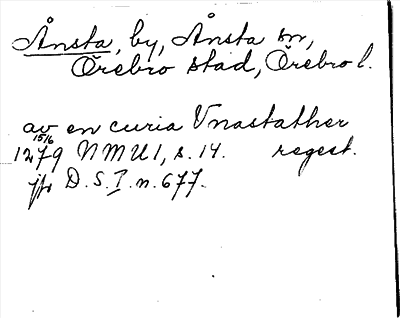 Ånsta, by, Ånsta sn,
Örebro stad, Örebro l.
av en curia Vnastather
15/6
1279 NMU1, s. 14. regest.
jfr D.S.I.n.677.